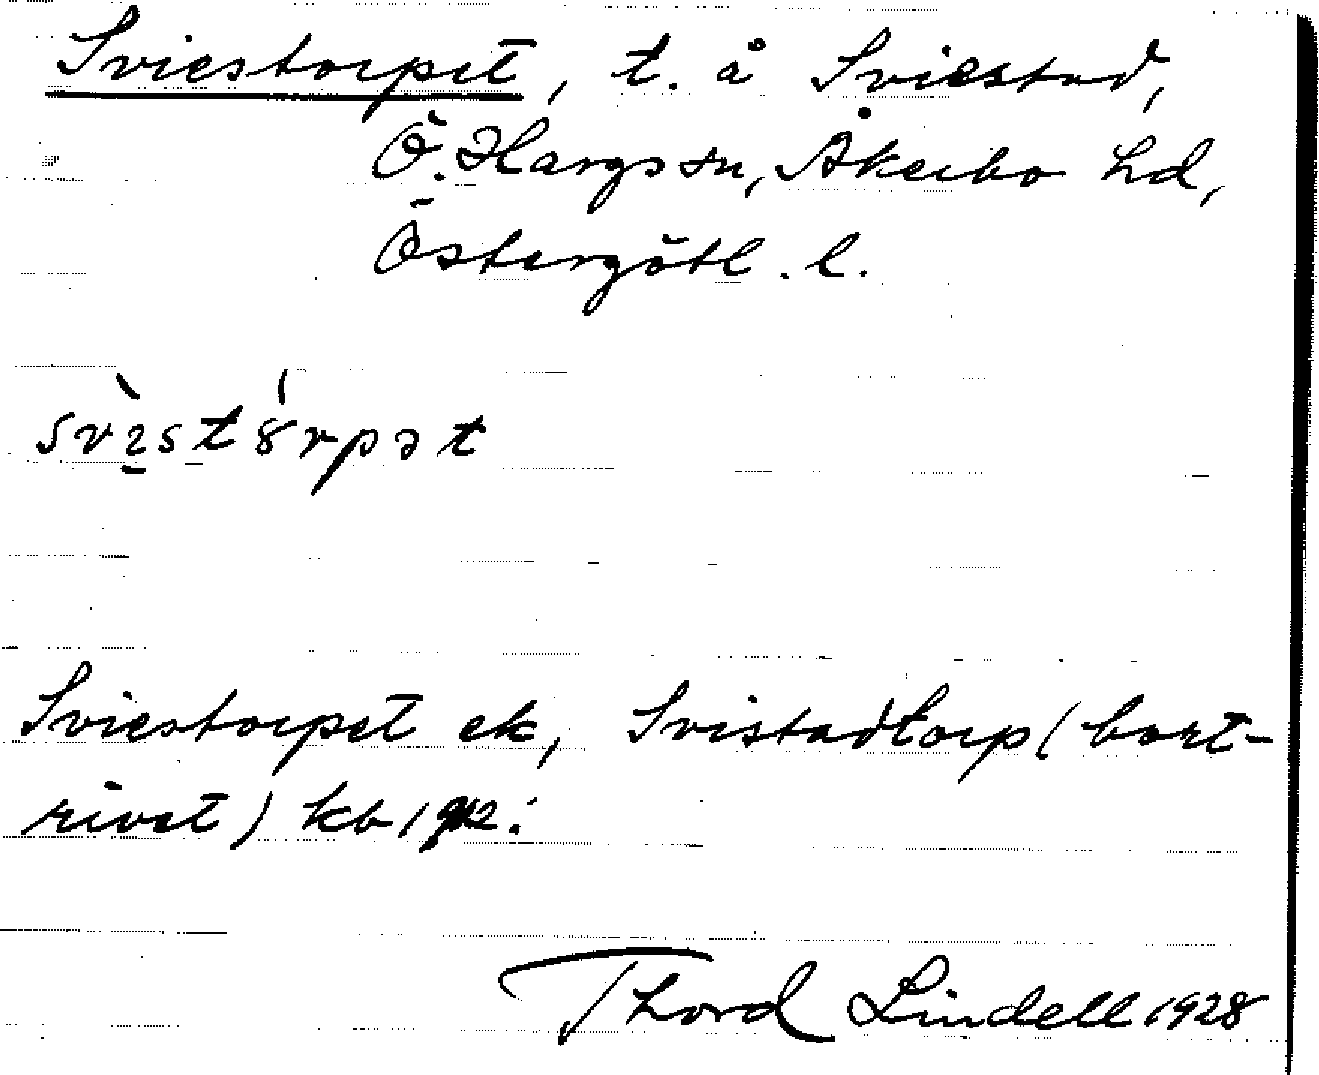 Sviestorpet, t. å Sviestad,
Ö. Hargs sn, Åkerbo hd,
Östergötl. l.
svìstórpət
Sviestorpet ek, Svistadtorp (bort-
rivet) kb 1912.
Thord Lindell 1928